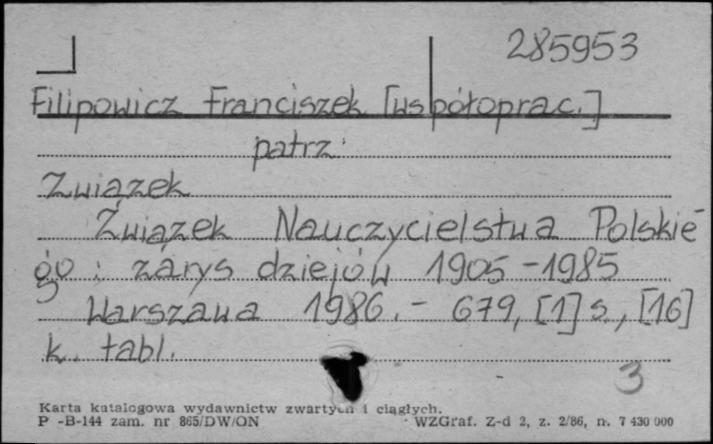 285953
Filipowicz Franciszek [współoprac.]
patrz:
Związek
Związek Nauczycielstwa Polskie-
go : zarys dziejów 1905-1985
Warszawa 1986. - 679, [1] s., [16]
k. tabl.
3
Karta katalogowa wydawnictw zwartych i ciągłych.
P-B-144 zam. nr 865/DW/ON WZGraf. Z-d 2, z. 2/86, n. 7 430 000